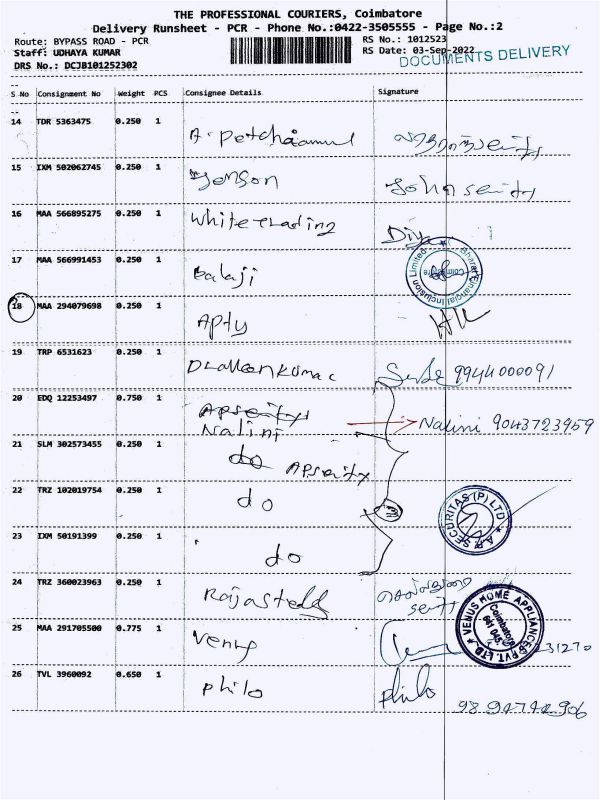 THE PROFESSIONAL COURIERS, Coimbatore
Delivery Runsheet - PCR - Phone No.:0422-3505555 - Page No.:2
Route: BYPASS ROAD - PCR
RS No.: 1012523
Staff: UDHAYA KUMAR
RS Date: 03-Sep-2022
DRS No.: DCJB101252302
DOCUMENTS DELIVERY
S No Consignment No Weight PCS Consignee Details Signature
14 TDR 5363475 0.250 1
15 IXM 502062745 0.250 1 Jenson
16 MAA 566895275 0.250 1 White trading Diya
17 MAA 566991453 0.250 1 Balaji
Bharat Financial Inclusion Limited
Coimbatore
18 MAA 294079698 0.250 1 Apty
19 TRP 6531623 0.250 1 9944000091
20 EDQ 12253497 0.750 1
Nalini Nalini 9043723959
21 SLM 302573455 0.250 1 do
22 TRZ 102019754 0.250 1 do
A.P. SECURITAS (P) LTD
23 IXM 50191399 0.250 1 do
24 TRZ 360023963 0.250 1
25 MAA 291705500 0.775 1 Venus
VENUS HOME APPLIANCES PVT. LTD
Coimbatore
641 045
31270
26 TVL 3960092 0.650 1 philo philo